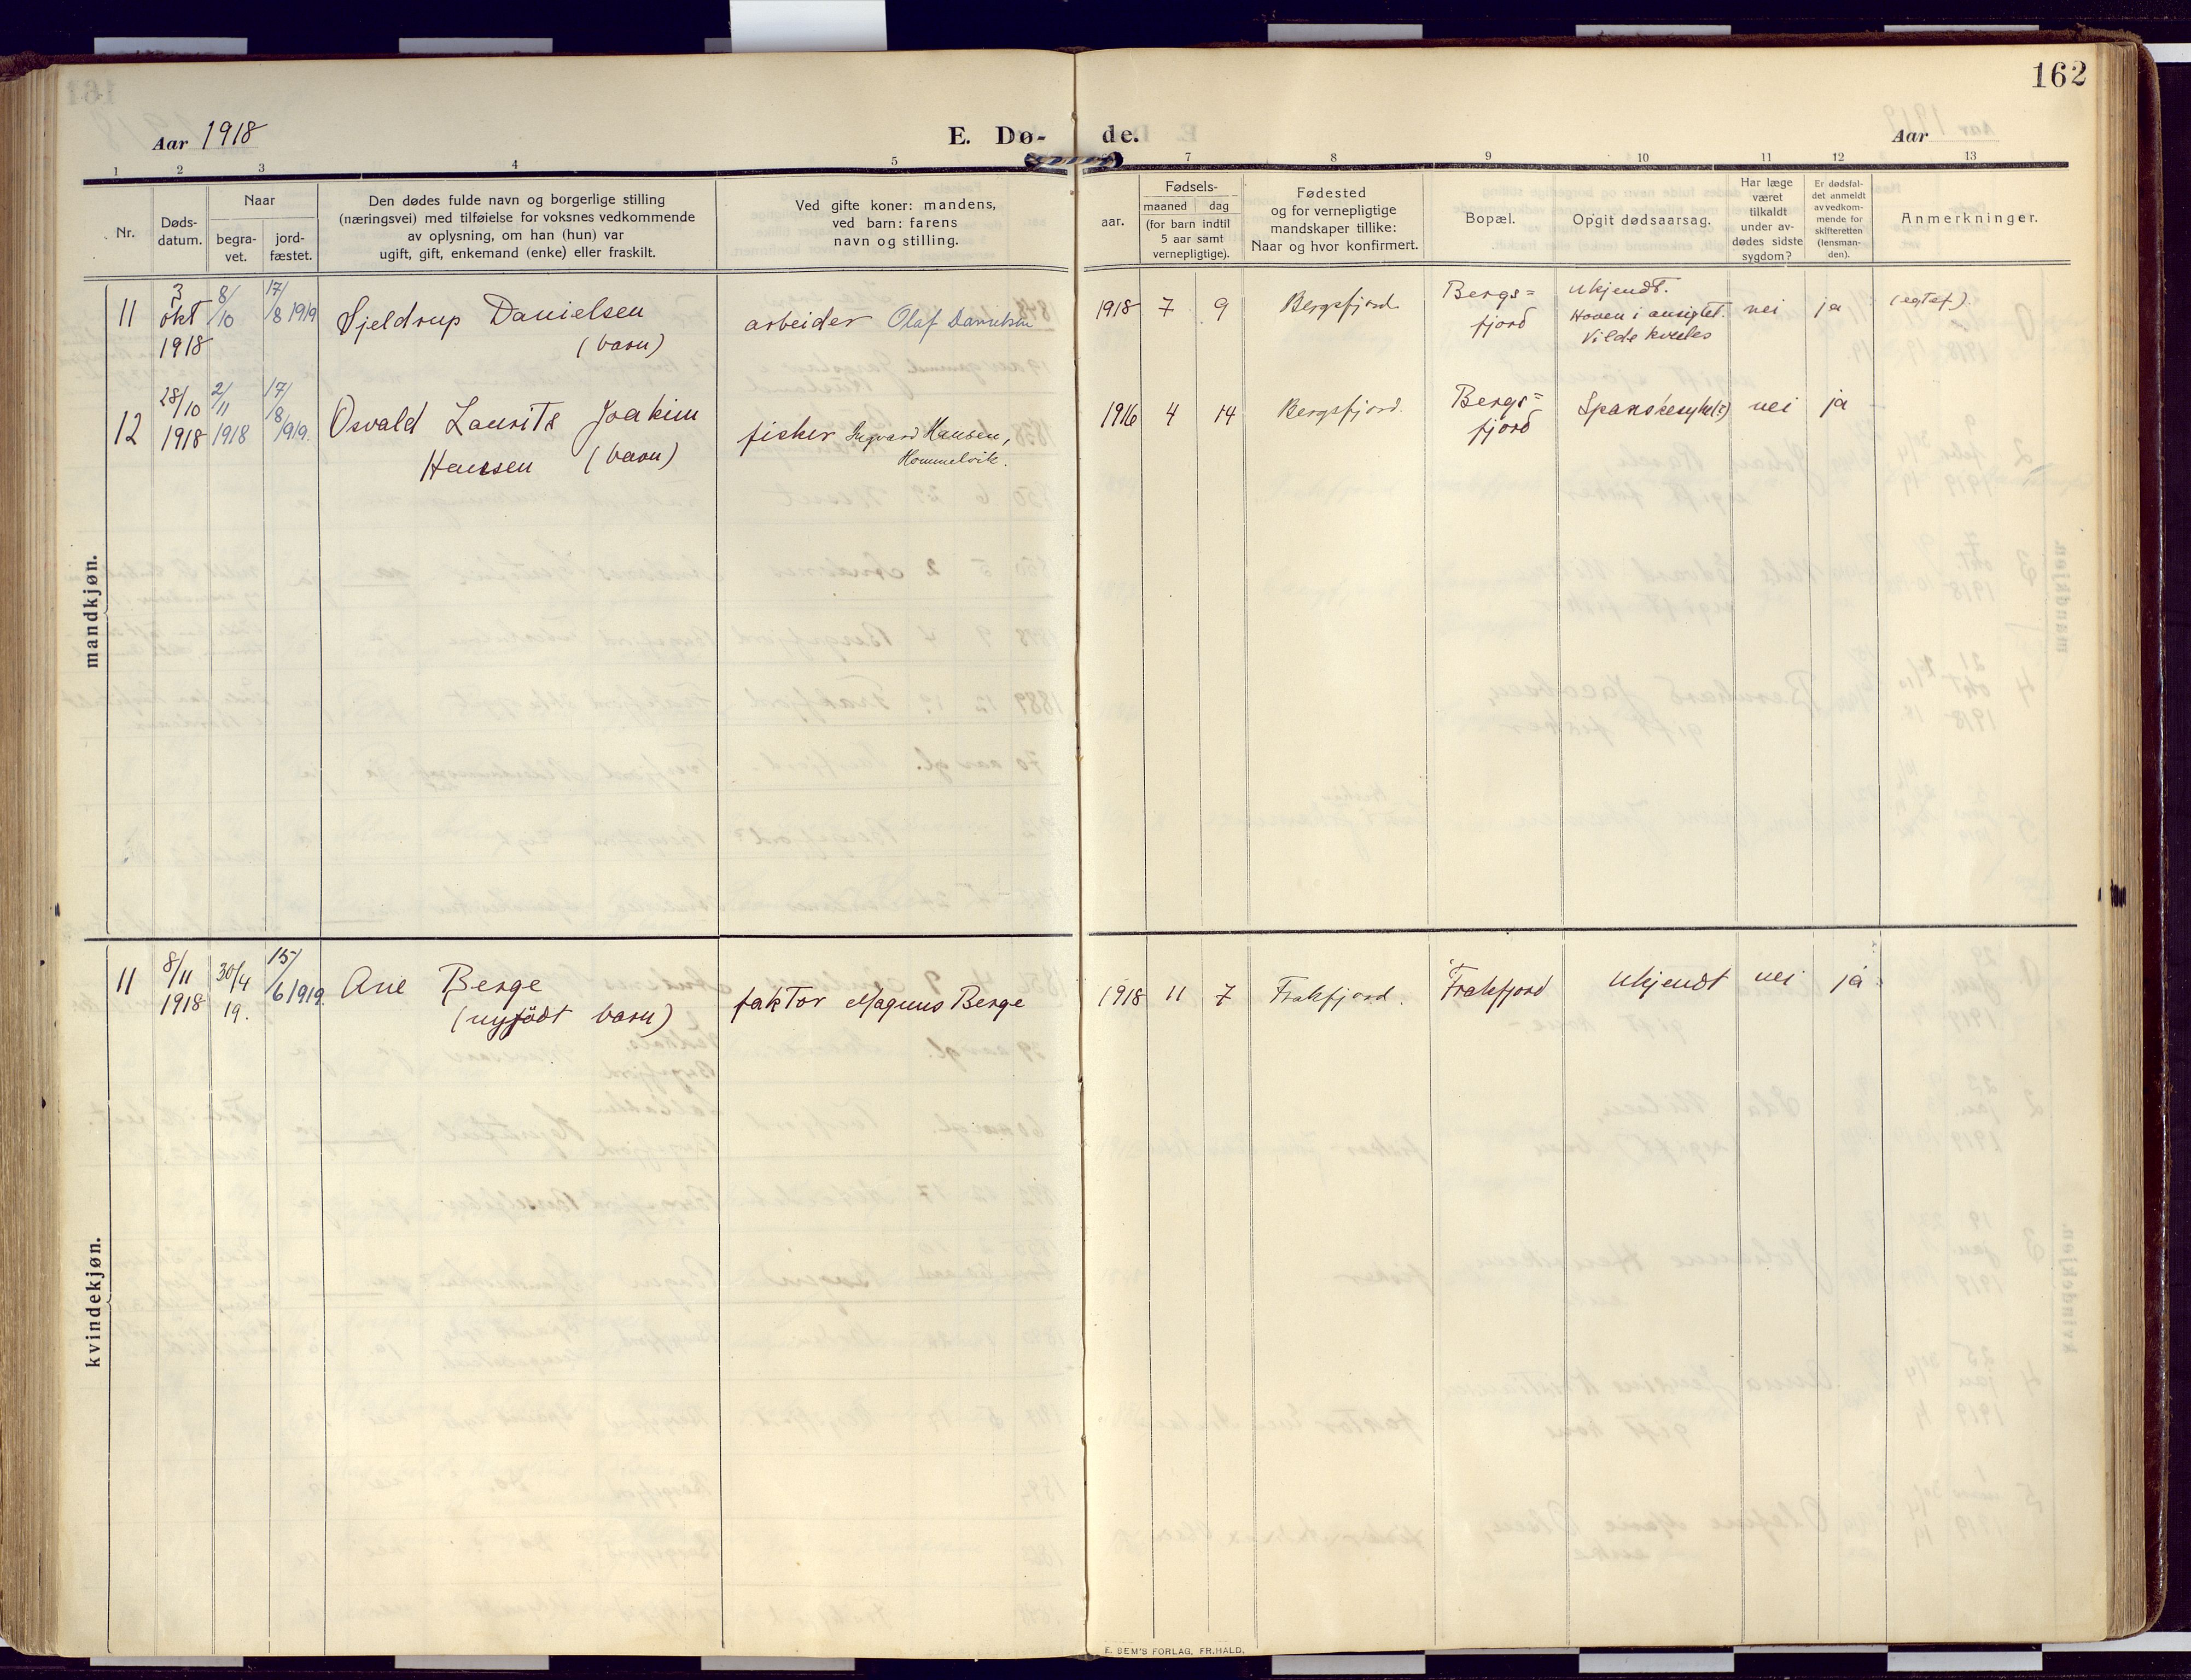 162
Aar 1918
E. Dø-
de.
Aar
1 2 3 4 5 7 8 9 10 11 12 13
Nr.
Døds-
datum.
Naar
begra-
vet.
jord-
fæstet.
Den dødes fulde navn og borgerlige stilling
(næringsvei) med tilføielse for voksnes vedkommende
av oplysning, om han (hun) var
ugift, gift, enkemand (enke) eller fraskilt.
Ved gifte koner: mandens,
ved barn: farens
navn og stilling.
aar.
Fødsels-
maaned dag
(for barn indtil
5 aar samt
vernepligtige).
Fødested
og for vernepligtige
mandskaper tillike:
Naar og hvor konfirmert.
Bopæl.
Opgit dødsaarsag.
Har læge
været
tilkaldt
under av-
dødes sidste
sygdom?
Er dødsfal-
det anmeldt
av vedkom-
mende for
skifteretten
(lensman-
den).
Anmerkninger.
mandkjøn.
11
3
okt
1918
8/
10
17/
8 1919
Hjeldrup Danielsen
(barn)
arbeider Olaf Danielsen
1918 7 9
Bergsfjord
Bergs=
fjord
Ukjendt.
Hoven i ansigtet.
Vilde kveles
nei
ja
(egtef).
12
28/10
1918
2/
11
1918
17/
8
1919.
Osvald Laurits Joakim
Hansen (barn)
fisker Ingvard Hansen,
Hommelvik.
1916 4 14
Bergsfjord.
Bergs=
fjord
Spanskesyke(?)
nei
ja
kvindekjøn.
11
8/11
1918
30/4
19.
15/
6 1919.
Ane Berge
(nyfödt barn)
faktor Magnus Berge
1918 11 7
Frakfjord.
Frakfjord
Ukjendt
nei
ja
E. SEM'S FORLAG, FR.HALD.